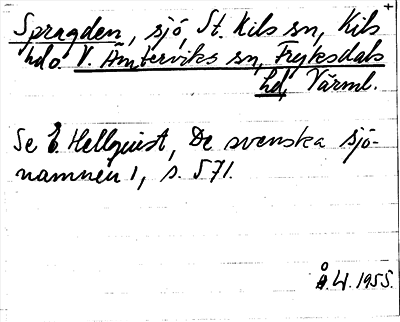 Spragden, sjö, St. Kils sn, Kils
hd o. V. Ämterviks sn, Fryksdals
hd, Värml.
Se E. Hellquist, De svenska sjö-
namnen 1, s. 571.
Å. W. 1955.